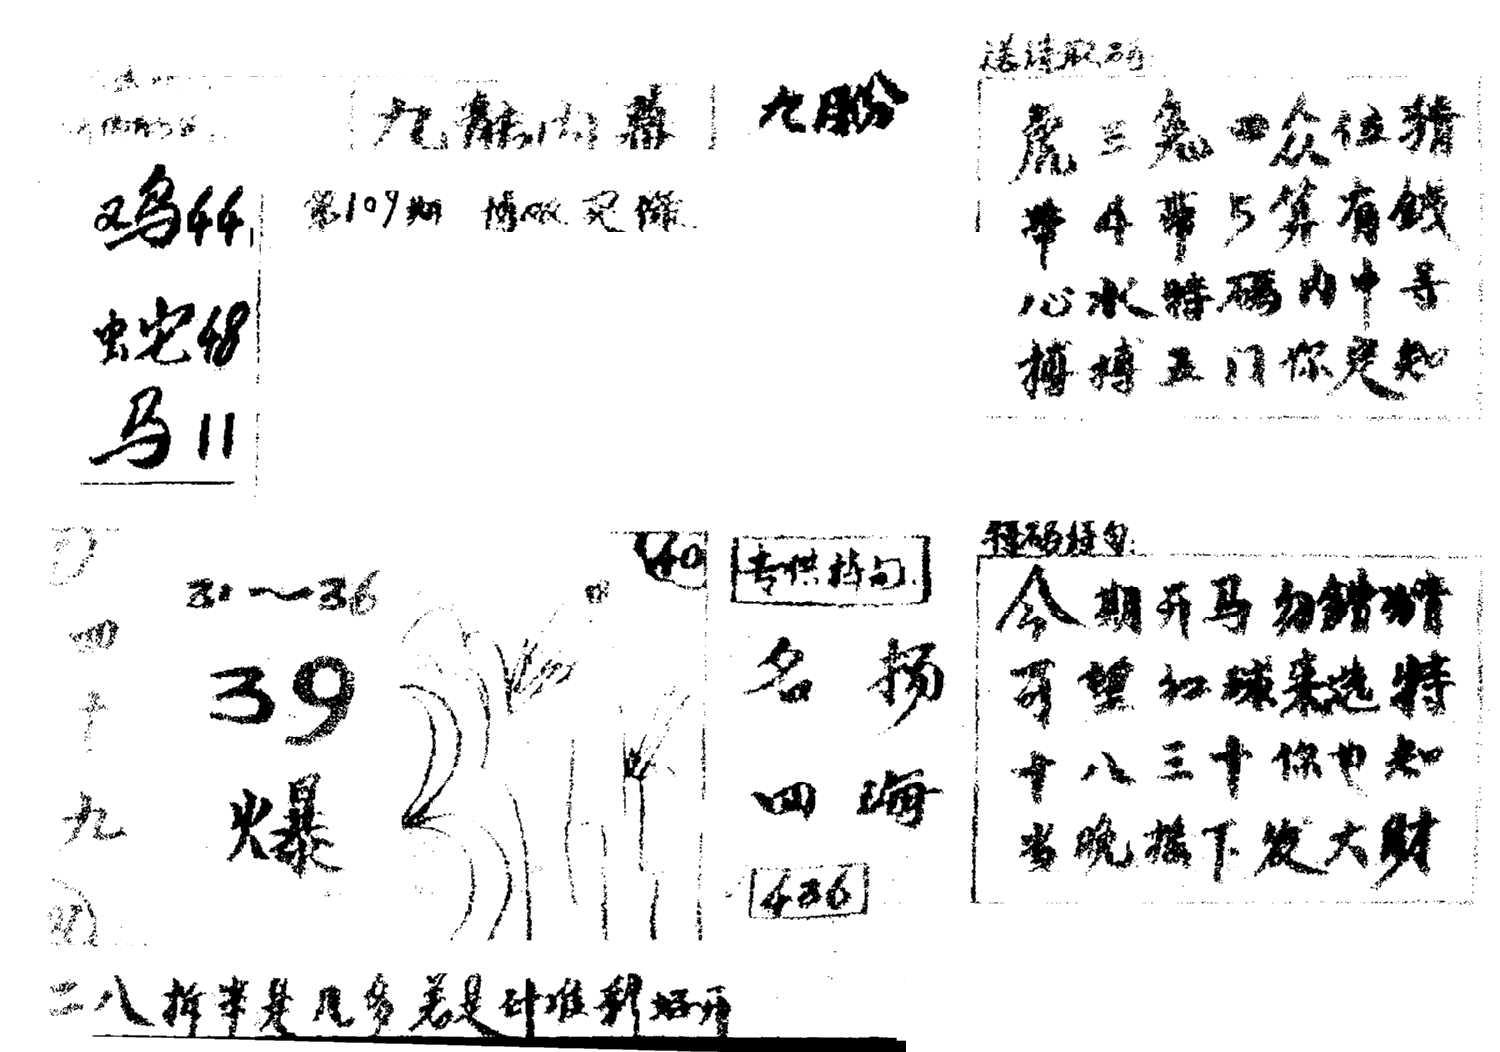 九龙内幕
九肦
第109期
鸡44
蛇48
马11
虎三兔四众位猜
带4带5算有钱
心水特码内中寻
搏搏五门你定知
40
31～36
39
爆
四十九
专供特句
名扬
四海
436
特码特句
今期开马勿错猜
可望红球来选特
十八三十你也知
当晚接下发大财
二八拆半是几多 若是计准彩好开